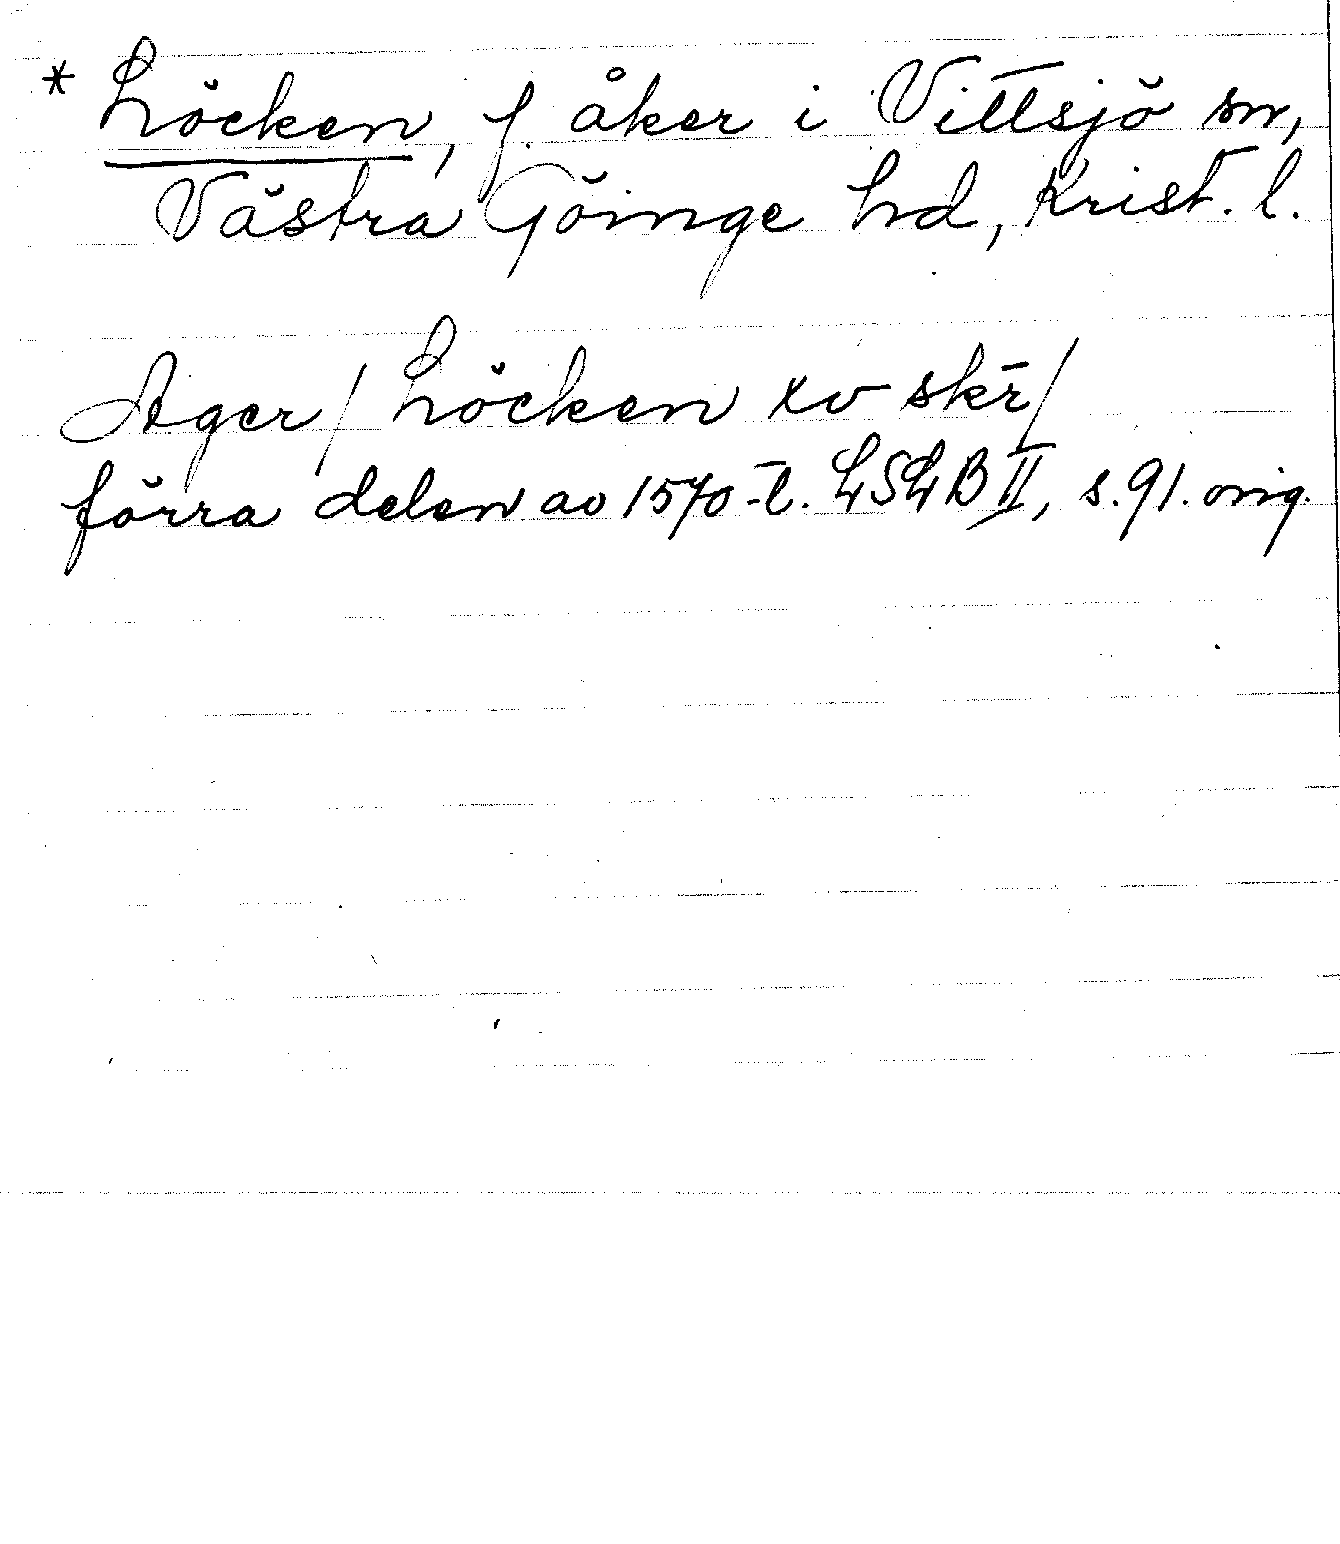 * Löcken, f. åker i Vittsjö sn,
Västra Göinge hd, Krist. l.
Ager / Löcken xv skr̄ /
förra delen av 1570-t. LSLB II, s. 91. orig.